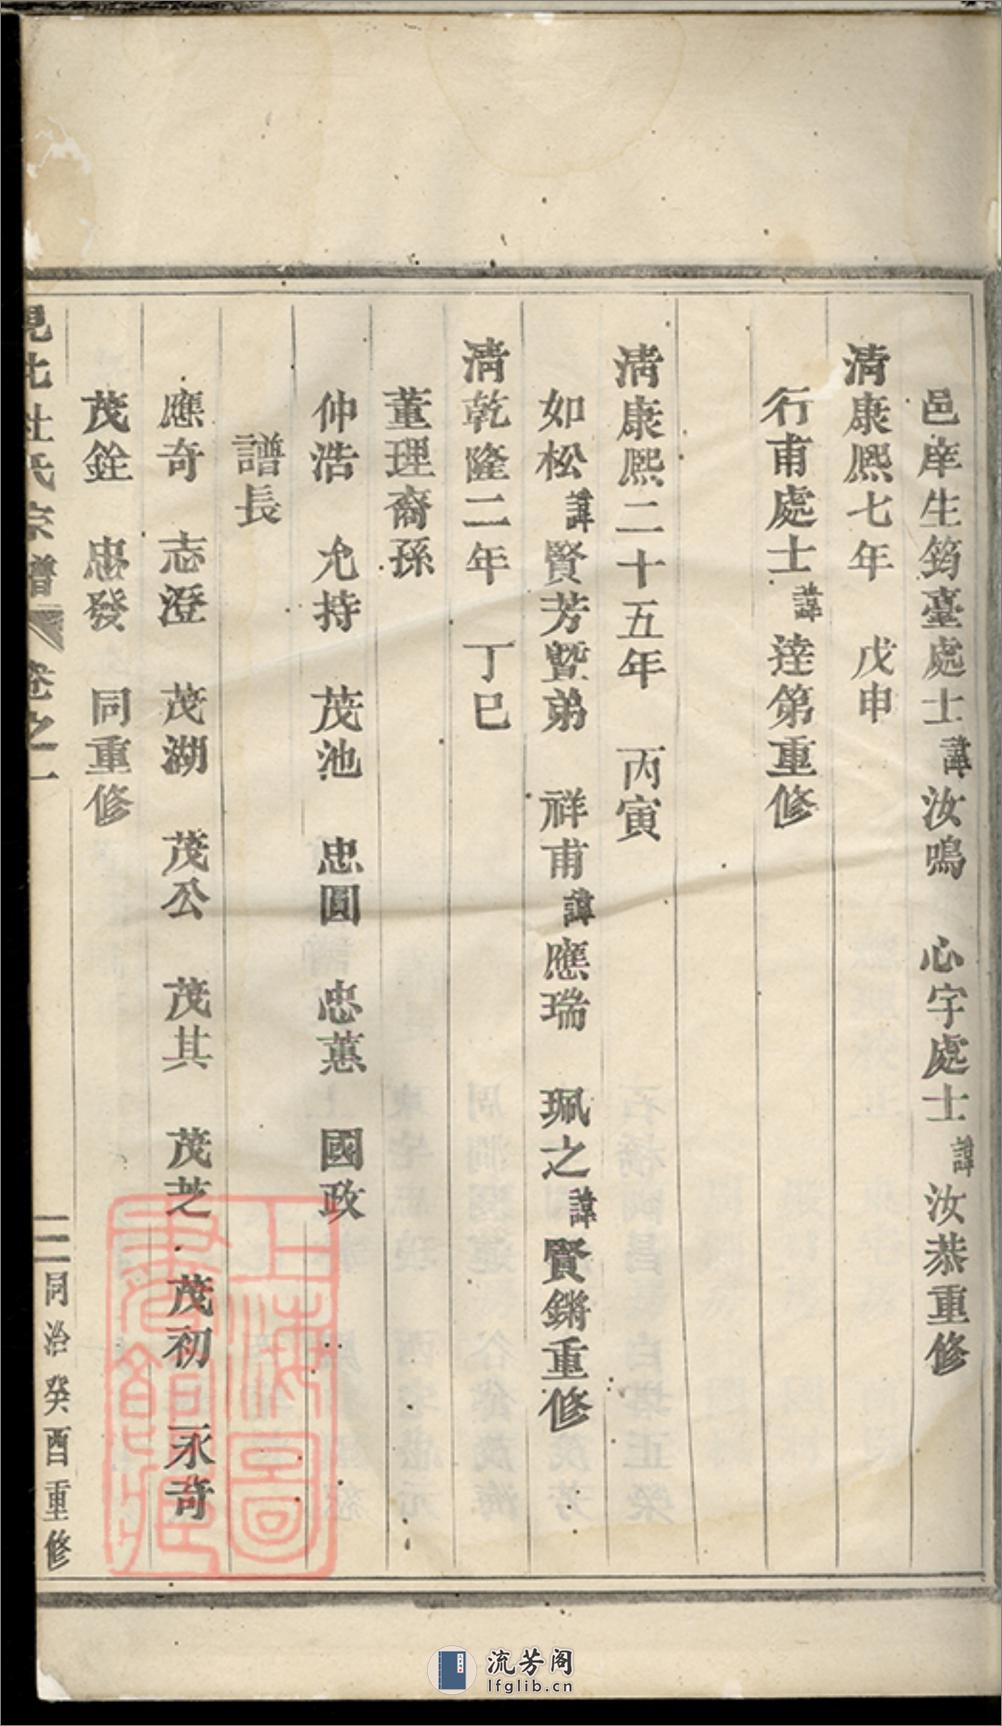 邑庠生筠臺處士諱汝鳴　心宇處士諱汝恭重修
清康熙七年　戊申
行甫處士諱逵第重修
清康熙二十五年　丙寅
如松諱賢芳暨弟　祥甫諱應瑞　珮之諱賢鏘重修
清乾隆二年　丁巳
董理裔孫
仲浩　允持　茂池　忠圓　忠蕙　國政
譜長
應奇　志澄　茂湖　茂公　茂其　茂芝　茂初　永奇
茂銓　忠發　同重修
北杜氏宗譜　卷之一　二　同治癸酉重修
上海圖書館藏
流芳阁
lfglib.cn